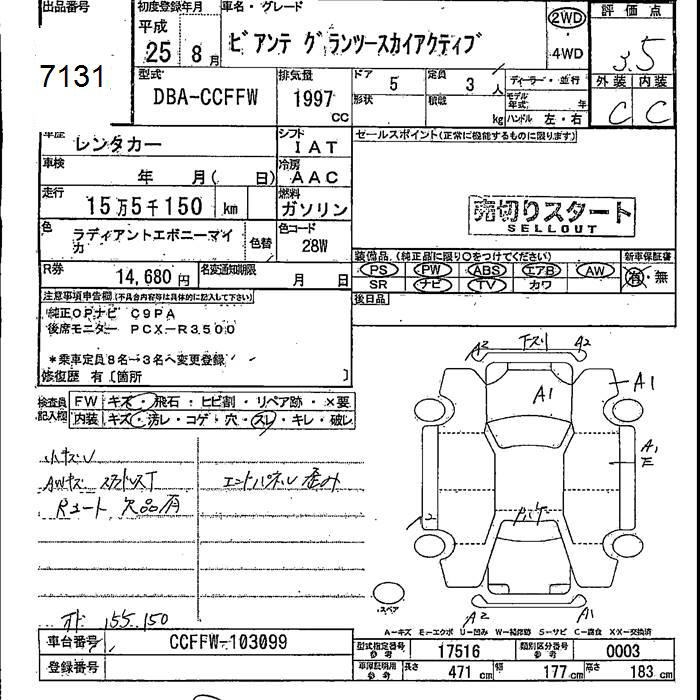 出品番号
7131
初度登録年月
平成
25年 8月
車名・グレード
ビアンテ グランツースカイアクティブ
2WD
・
4WD
評価点
3.5
外装 内装
C C
型式
DBA-CCFFW
排気量
1997
CC
ドア 5
定員 3 人
形状
積載 kg
ディーラー・並行
モデル年式 年
ハンドル 左・右
車歴
レンタカー
シフト
IAT
車検
年 月(日)
冷房
AAC
走行
15万5千150 km
燃料
ガソリン
色
ラディアントエボニーマイカ
色替
色コード
28W
R券
14,680 円
名変通知期限
月 日
セールスポイント(正常に機能するものに限ります)
売切りスタート
SELLOUT
装備品(純正品に限り○をつけてください)
PS PW ABS エアB AW
SR ナビ TV カワ
新車保証書
有・無
後日品
注意事項申告欄(不具合内容等は具体的に記入して下さい)
純正OPナビ C9PA
後席モニター PCX-R3500
*乗車定員8名→3名へ変更登録
修復歴 有〔箇所 〕
検査員
記入欄
FW キズ・飛石:ヒビ割・リペア跡・×要
内装 キズ・汚レ・コゲ・穴・スレ・キレ・破レ
小キズU
AWキズ スタッドレスT
Rシート 欠品有
エンドパネル 歪み
オド 155,150
A2 下スリ A2
A1
A1
A1
E
A2 A1
スペア
A-キズ E-エクボ U-凹み W-補修跡 S-サビ C-腐食 X・XX-交換済
車台番号
CCFFW-103099
登録番号
型式指定番号
参考
17516
類別区分番号
参考
0003
車庫証明用
参考
長さ 471 cm
幅 177 cm
高さ 183 cm